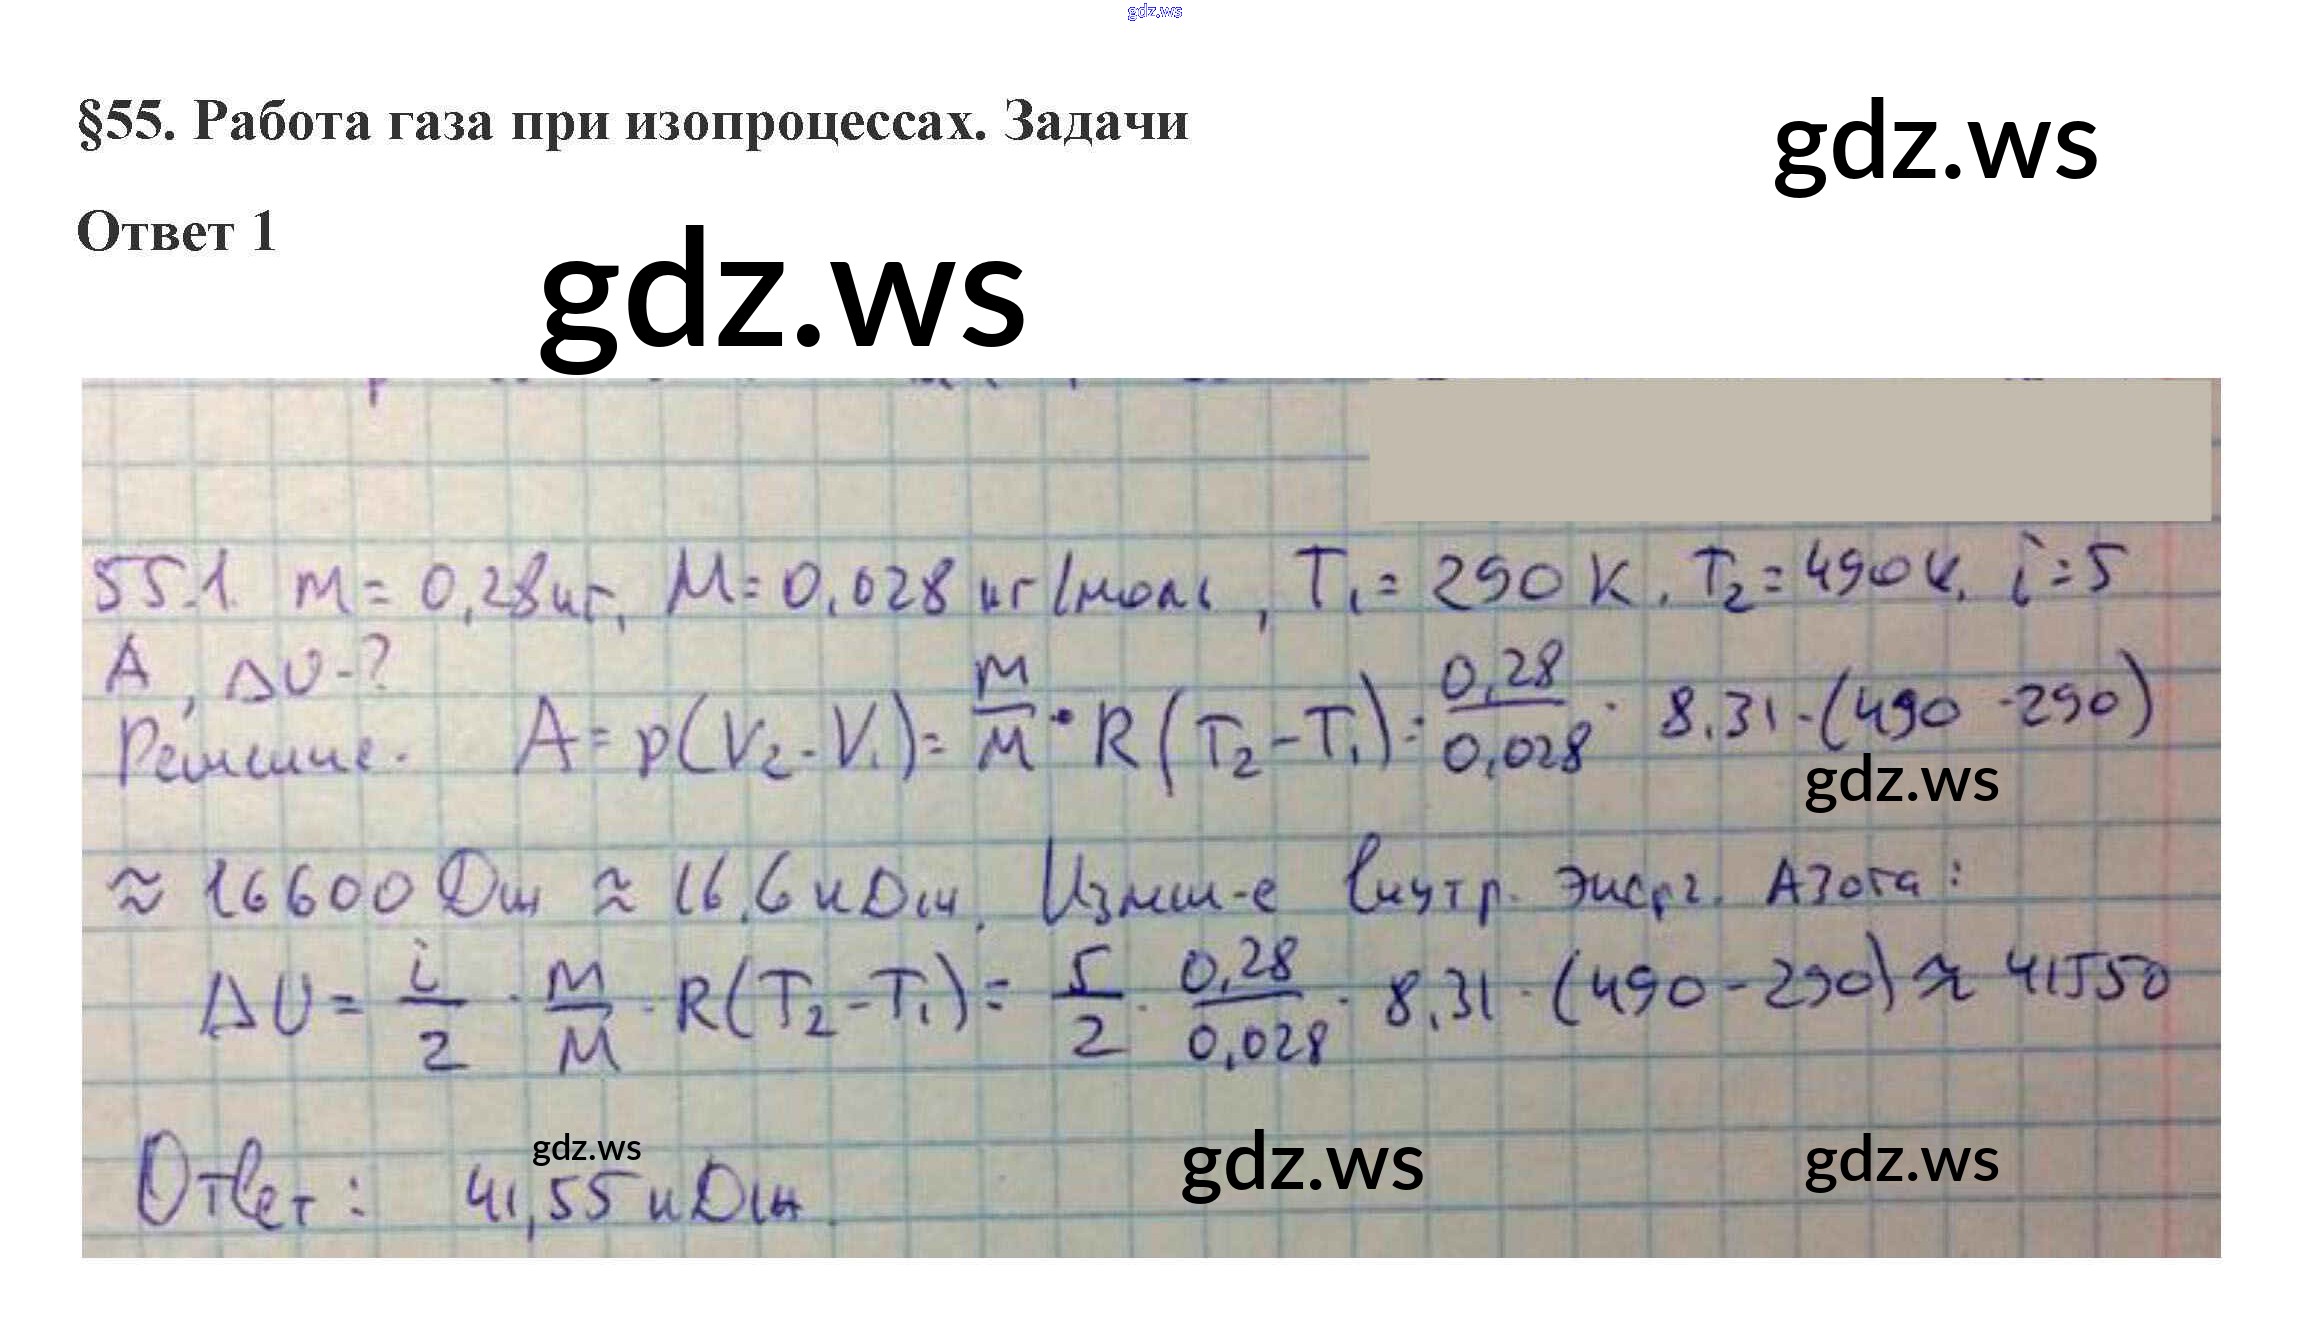 gdz.ws
§55. Работа газа при изопроцессах. Задачи
gdz.ws
Ответ 1
gdz.ws
55.1. m = 0,28 кг, M = 0,028 кг/моль, T₁ = 290 K, T₂ = 490 K, i = 5
A, ΔU - ?
Решение. A = p(V₂ - V₁) = m/M · R(T₂ - T₁) = 0,28/0,028 · 8,31 · (490 - 290)
gdz.ws
≈ 16600 Дж ≈ 16,6 кДж. Измен-е внутр. энерг. Азота:
ΔU = i/2 · m/M · R(T₂ - T₁) = 5/2 · 0,28/0,028 · 8,31 · (490 - 290) ≈ 41550
gdz.ws
gdz.ws
gdz.ws
Ответ: 41,55 кДж.